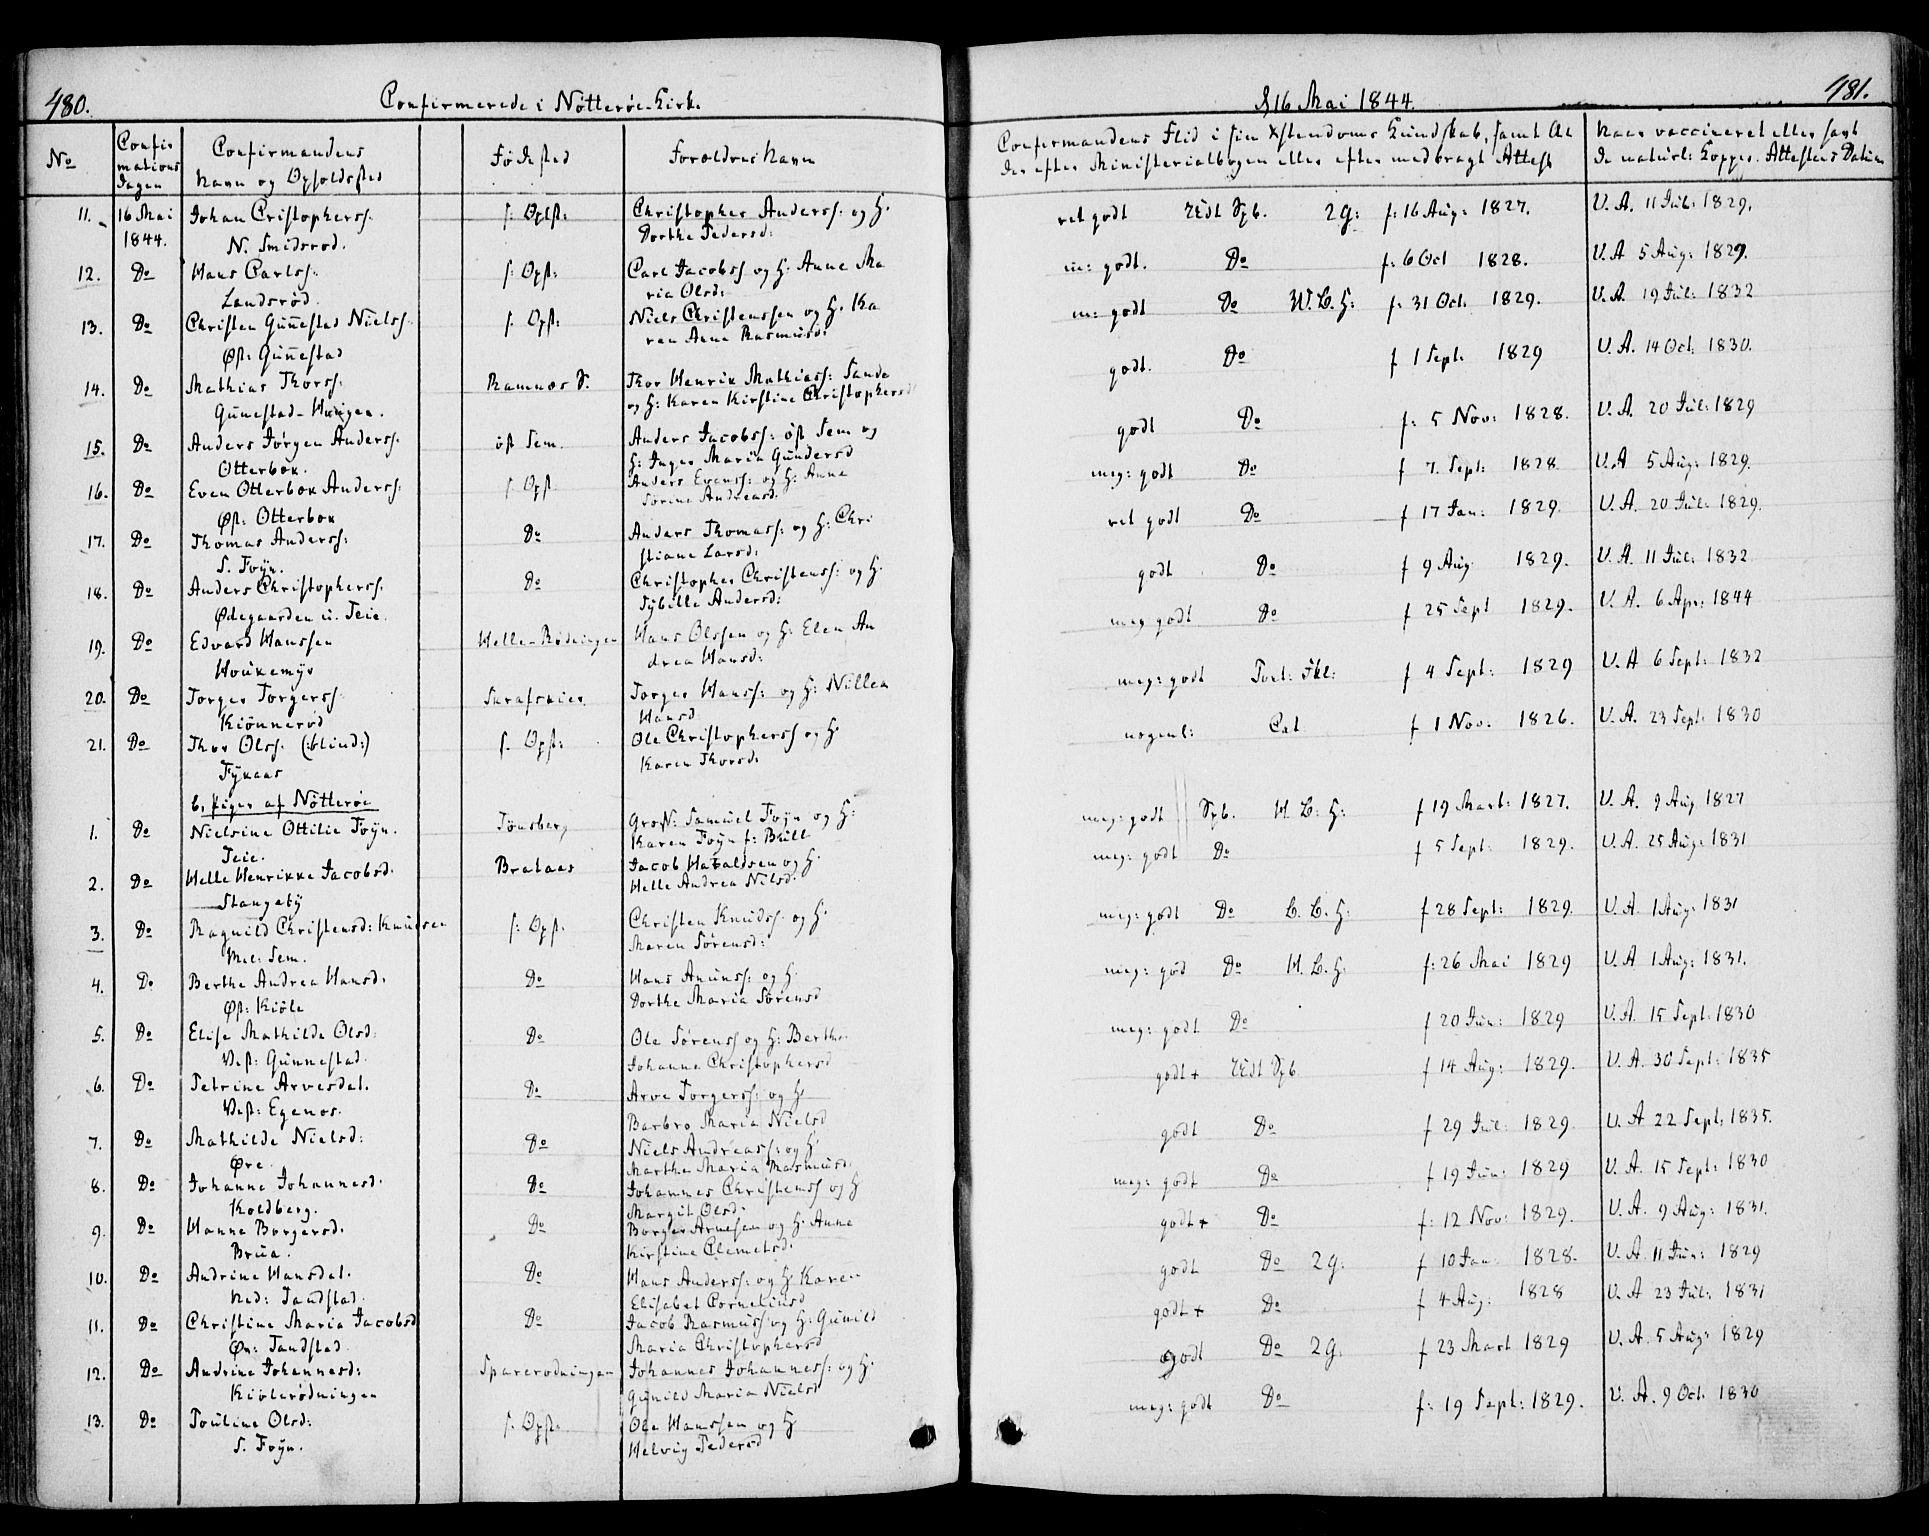 480.
Confirmerede i Nötteröe Kirke
No
Confirmations Dagen
Confirmandens Navn og Opholdssted
Födested
Foreldrenes Navn
11. 16 Mai 1844. Johan Christophers: s: Opst: Christopher Anderss. og H.
N. Smidsrod. Dorthe Peders d:
12. Do Hans Carls: s: Opst: Carl Jacobss og H. Anne Ma
Landsröd. ria Olsd:
13. Do Christen Gunnestad Niels: s: Opst: Niels Christenssen og H. Ka
Øst: Gunnestad ren Anne Rasmusd:
14. Do Mathias Thorss: Ramnæs P. Thor Henrik Mathiass: Sande
Gunnestad- og H: Karen Kirstine Christophersd
15. Do Anders Jörgen Anderss. öst Sem. Anders Jacobss: öst Sem og
Otterbek. H: Inger Maria Gundersd
16. Do Even Otterbek Anderss: s: Opst. Anders Evenss: og H: Anne
Øst: Otterbek Sörine Andreasd.
17. Do Thomas Anderss: Do Anders Thomass: og H: Chri
S. Foyn. stiane Larsd:
18. Do Anders Christophers. Do Christopher Christenss: og H.
Ødegaarden u. Teie. Sybille Andersd:
19. Do Edvard Hanssen Helle-Rödningen Hans Olssen og H: Elen An
Houkemyr drea Hansd:
20. Do Torger Torgerss. Torger Hanss: og H: Nillea
Kiönneröd Hansd
21. Do Thor Olss. (:blind:) s. Opst: Ole Christopherss og H.
Fykaas Karen Thorsd:
b, piger af Nötteröe
1. Do Nielsine Ottilie Foyn. Tönsberg Gross: Samuel Foyn og H:
Teie. Karen Foyn f: Bull
2. Do Helle Henrikke Jacobsd. Brataas Jacob Haraldsen og H.
Stangeby Helle Andrea Nilsd.
3. Do Ragnild Christensd: Knudsen s: Opst. Christen Knudss. og H.
Mel: Sem. Maren Sörensd:
4. Do Berthe Andrea Hansd. Do Hans Amunss: og H.
Øst: Kiöle Dorthe Maria Sörensd
5. Do Elise Mathilde Olsd: Do Ole Sörenss og H: Berthe
Vest: Gunnestad. Johanne Christophersd
6. Do Petrine Arvesdat. Do Arve Torgerss: og H
Vest: Egenes. Barbro Maria Nielsd
7. Do Mathilde Nielsd: Do Niels Andreass: og H
Øre. Marthe Maria Rasmusd.
8. Do Johanne Johannesd. Do Johannes Christenss og H
Koldberg. Margit Olsd.
9. Do Hanne Borgersd. Do Borger Arnesen og H. Anne
Brua. Kirstine Clemetsd.
10. Do Andrine Hansdat. Do Hans Anderss: og H. Karen
Ned: Tandstad. Elisabet Corneliusd
11. Do Christine Maria Jacobsd Do Jacob Rasmuss og H: Gunild
Øv: Tandstad Maria Christophersd
12. Do Andrine Johannesd: Sparerodningen Johannes Johanness: og H.
Kiölerödningen Gunild Maria Nielsd
13. Do Pouline Olsd: s. Opst. Ole Hanssen og H
S. Foyn. Helvig Pedersd
16 Mai 1844.
481.
Confirmandens Flid i sin Xstendoms Kundskab, samt Al
der efter Ministerialbogen eller efter medbragt Attest
Naar vaccineret eller havt
de naturl: Kopper. Attestens Datum
ret godt ZEdt Spb. 2g: f: 16 Aug: 1827. V. A. 11 Jul: 1829.
m: godt. Do f: 6 Oct 1828. V. A 5 Aug: 1829.
m: godt Do W. L. H: f: 31 Oct. 1829. V. A. 19 Jul: 1832
godt. Do f 1 Sept. 1829 V. A. 14 Oct. 1830.
godt Do f: 5 Nov: 1828. V. A. 20 Jul: 1829
meg: godt Do f 7. Sept: 1828. V. A 5 Aug: 1829.
ret godt Do f 17 Jan: 1829. V. A. 20 Jul: 1829.
godt Do f 9 Aug 1829. V. A. 11 Jul: 1832
meg godt Do f 25 Sept 1829. V. A. 6 Apr: 1844
meg: godt f 4 Sept: 1829 V. A 6 Sept: 1832
nogenl: Cat. f 1 Nov: 1826. V. A. 23 Sept: 1830
meg: godt Spb. H. L: H: f 19 Mart: 1827. V. A. 9 Aug. 1827
meg: godt Do f 5 Sept: 1829. V. A. 25 Aug: 1831
meg: godt Do L. L. H: f 28 Sept: 1829. V. A. 1 Aug: 1831
meg: god Do H. L. H: f: 26 Mai 1829 V. A 1 Aug: 1831.
meg: godt Do f 20 Jun: 1829 V. A. 15 Sept: 1830
godt+ ZEdt Spb f 14 Aug: 1829. V. A. 30 Sept: 1835
godt Do f 29 Jul: 1829. V. A 22 Sept: 1835.
meg: godt Do f 19 Jun: 1829 V. A. 15 Sept: 1830
godt+ Do f: 12 Nov: 1829. V. A. 9 Aug: 1831.
godt Do 2g: f 10 Jan: 1828. V. A. 11 Jun: 1829
godt+ Do f 4 Aug: 1828 V. A 23 Jul: 1831
godt Do 2g. f 23 Mart 1829 V. A. 5 Aug: 1829
meg: godt Do f: 19 Sept: 1829. V. A. 9 Oct. 1830